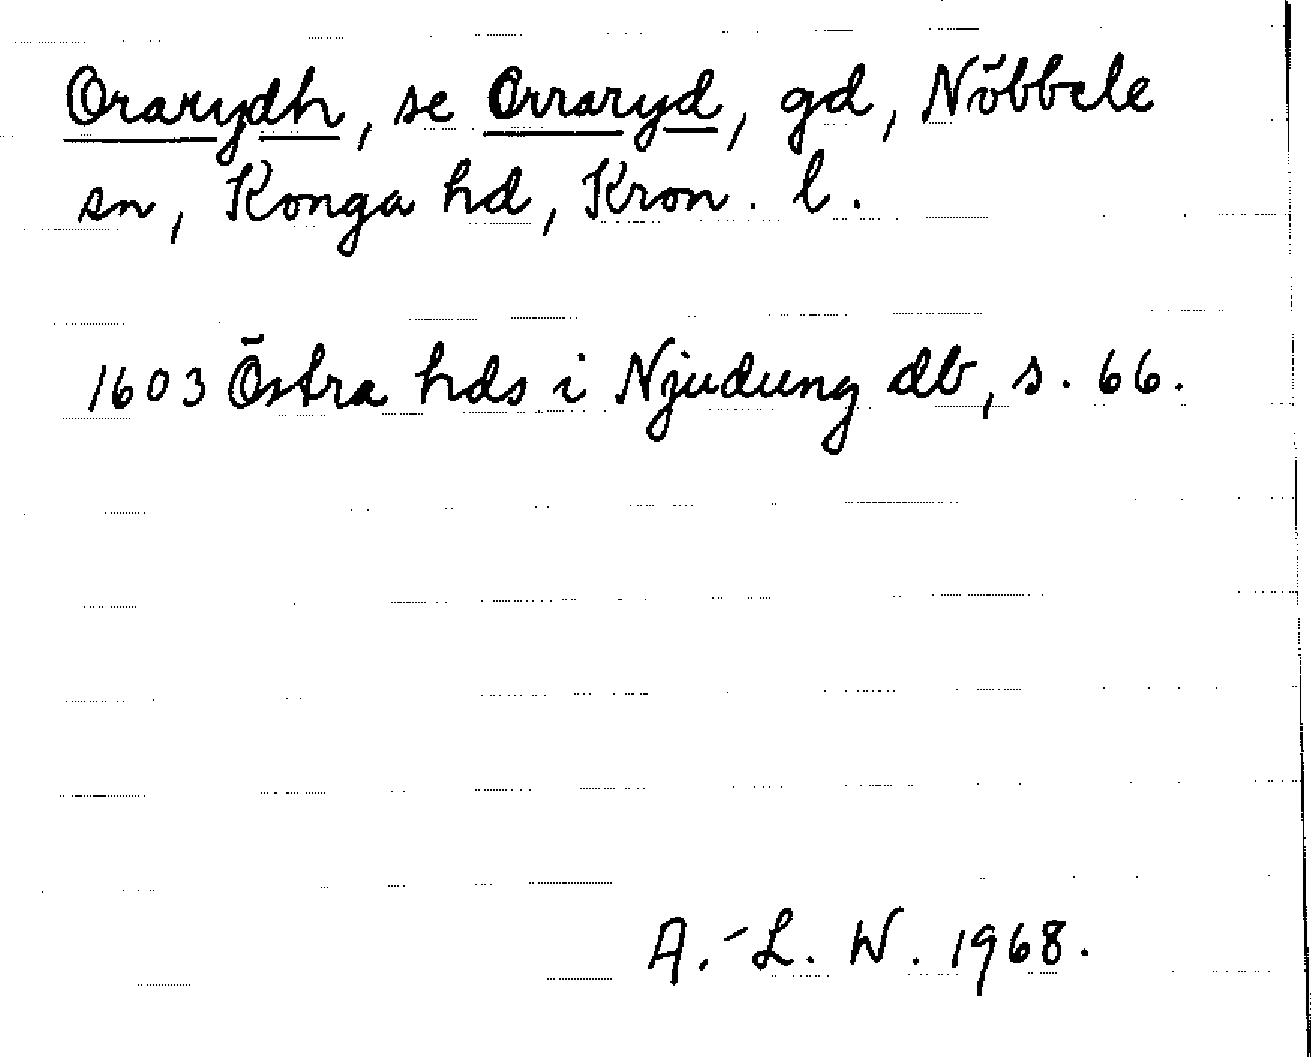 Orarydh, se Orraryd, gd, Nöbbele
sn, Konga hd, Kron. l.
1603 Östra hds i Njudung db, s. 66.
A.-L. W. 1968.